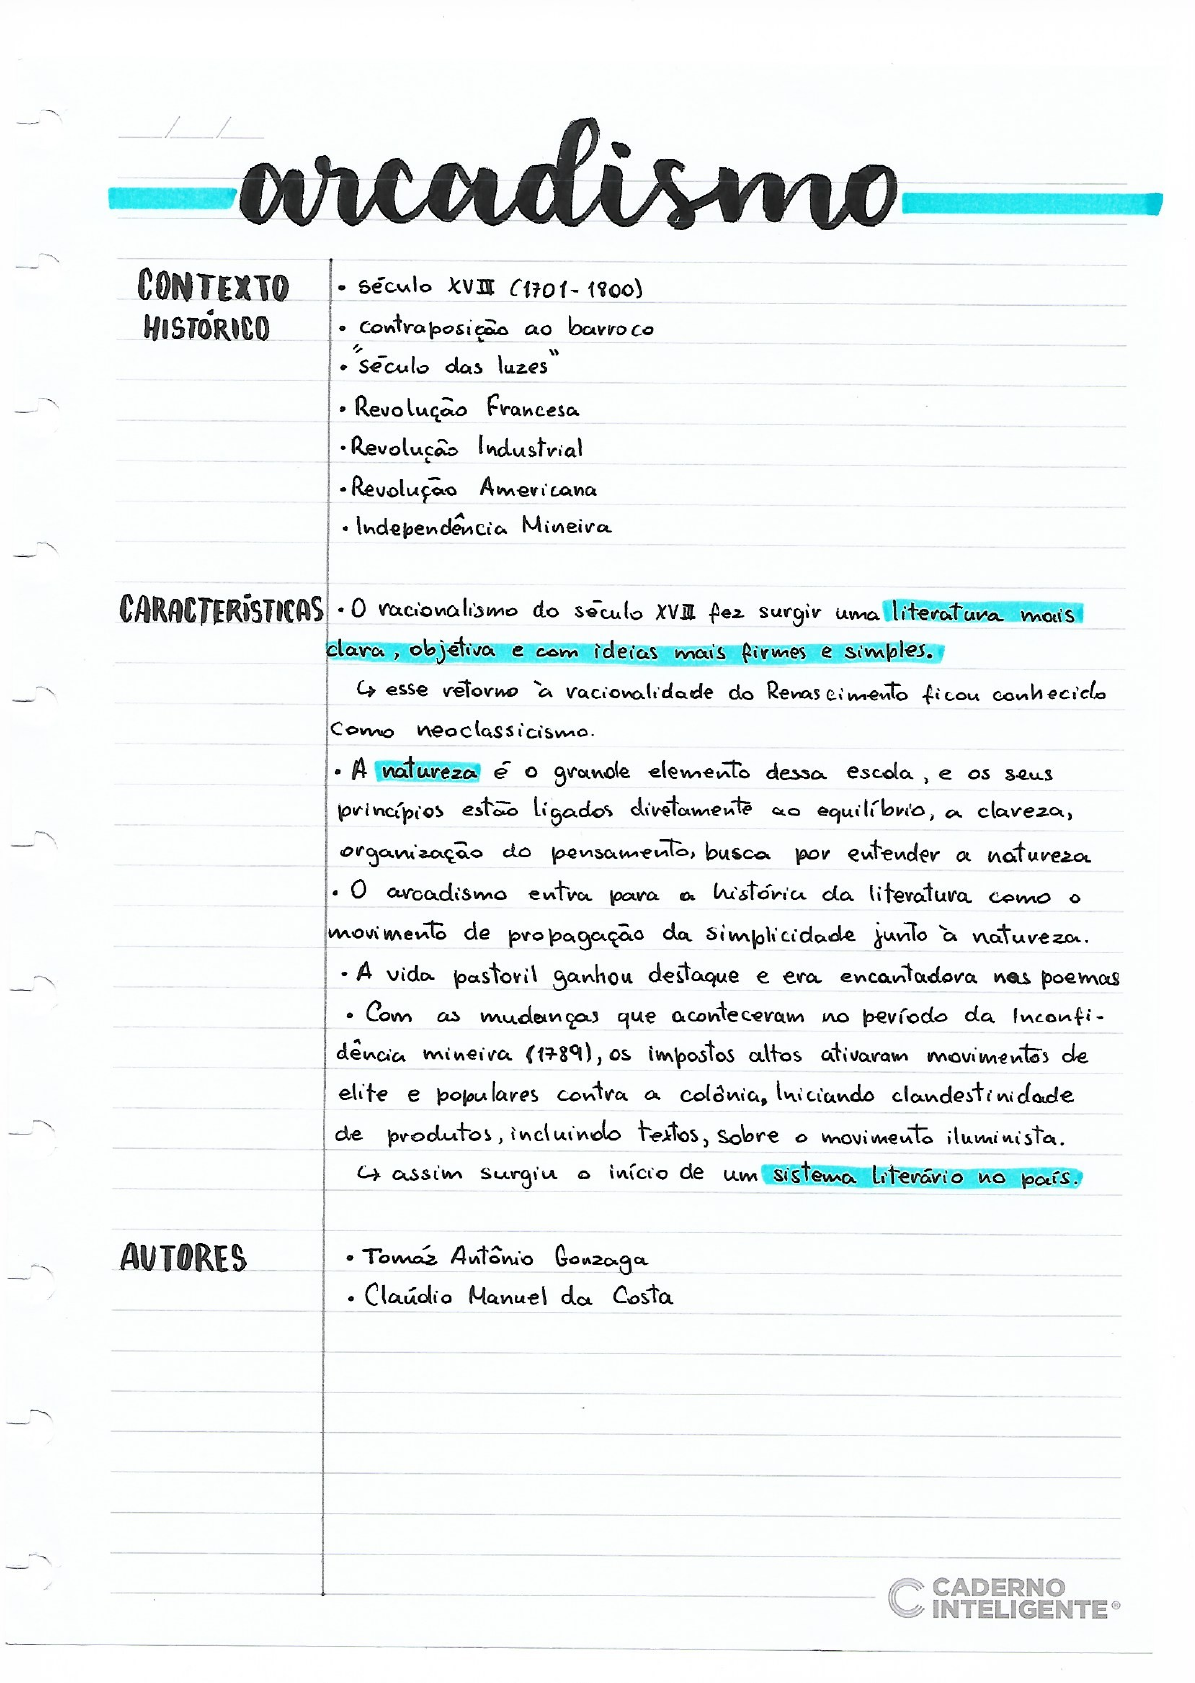 arcadismo
CONTEXTO
HISTÓRICO
• século XVIII (1701-1800)
• contraposição ao barroco
• "século das luzes"
• Revolução Francesa
• Revolução Industrial
• Revolução Americana
• Independência Mineira
CARACTERÍSTICAS
• O racionalismo do século XVIII fez surgir uma literatura mais
clara, objetiva e com ideias mais firmes e simples.
↳ esse retorno à racionalidade do Renascimento ficou conhecido
como neoclassicismo.
• A natureza é o grande elemento dessa escola, e os seus
princípios estão ligados diretamente ao equilíbrio, a clareza,
organização do pensamento, busca por entender a natureza
• O arcadismo entra para a história da literatura como o
movimento de propagação da simplicidade junto à natureza.
• A vida pastoril ganhou destaque e era encantadora nos poemas
• Com as mudanças que aconteceram no período da Inconfi-
dência mineira (1789), os impostos altos ativaram movimentos de
elite e populares contra a colônia, Iniciando clandestinidade
de produtos, incluindo textos, sobre o movimento iluminista.
↳ assim surgiu o início de um sistema literário no país.
AUTORES
• Tomáz Antônio Gonzaga
• Claúdio Manuel da Costa
CADERNO
INTELIGENTE®